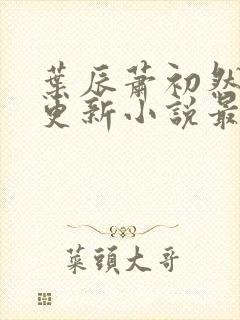 葉辰蕭初然
更新小說最
菜頭大哥